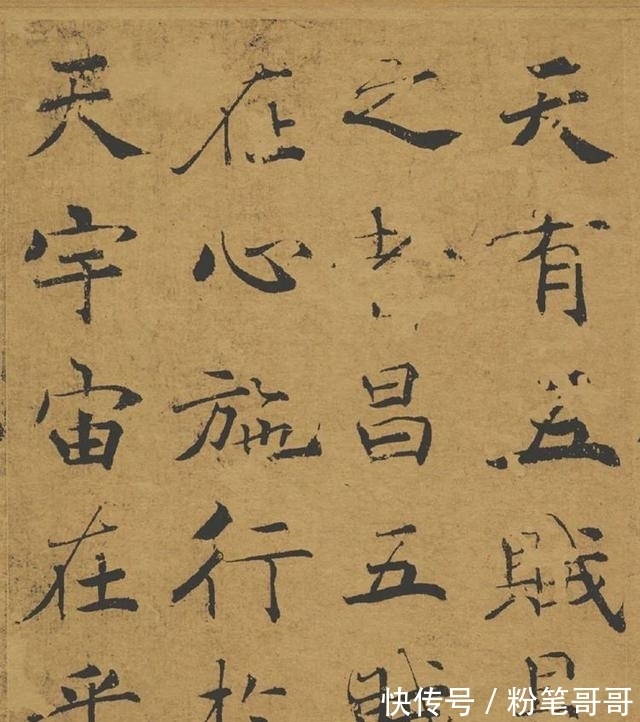 天有五賊見
之者昌五賊
在心施行於
天宇宙在乎
快传号 / 粉笔哥哥